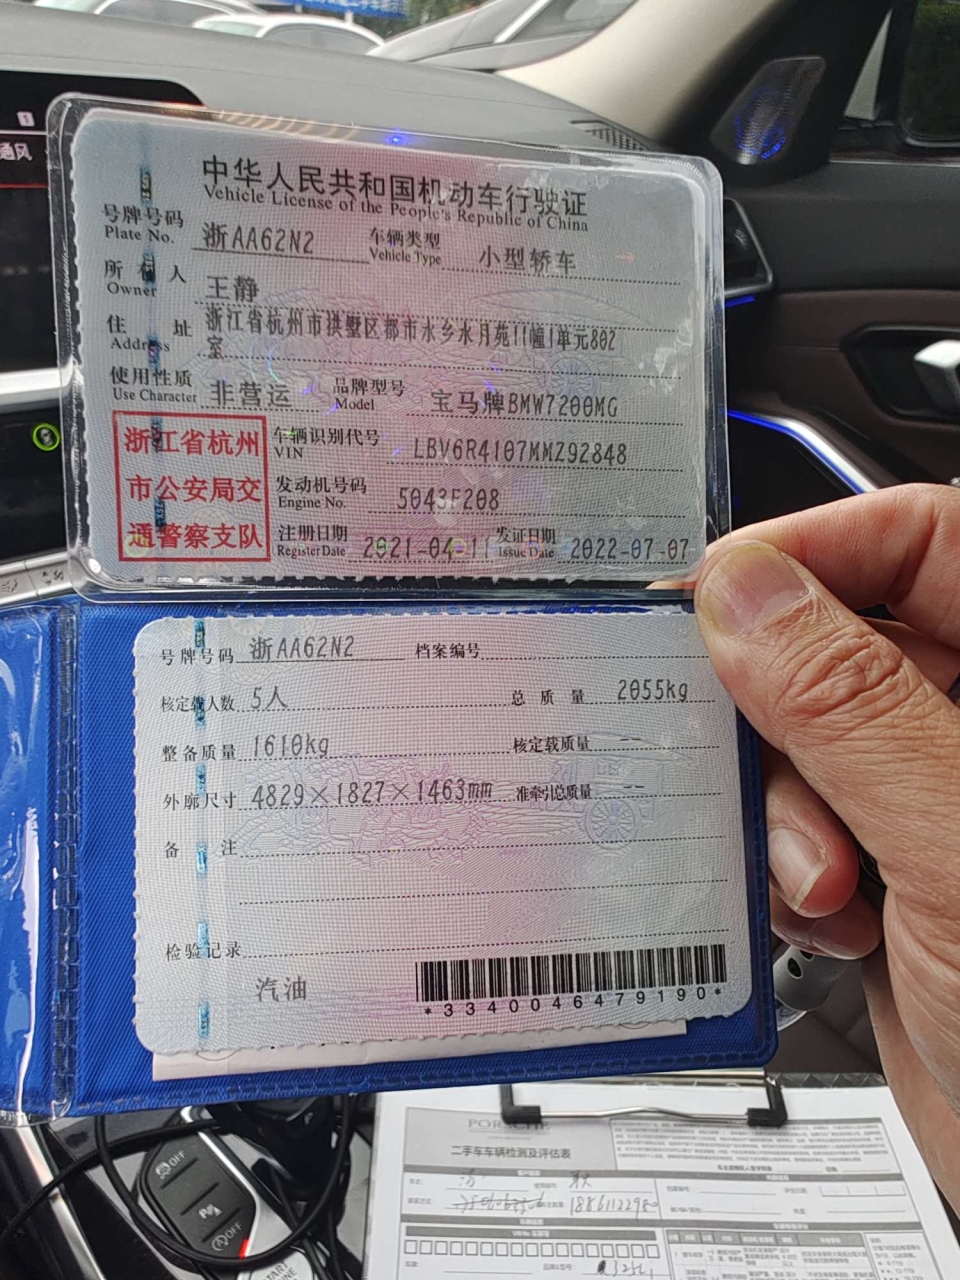 通风
中华人民共和国机动车行驶证
Vehicle License of the People's Republic of China
号牌号码 浙AA62N2 车辆类型 小型轿车
Plate No. Vehicle Type
所有人 王静
Owner
住址 浙江省杭州市拱墅区都市水乡水月苑11幢1单元802
Address 室
使用性质 非营运 品牌型号 宝马牌BMW7200MG
Use Character Model
浙江省杭州
市公安局交
通警察支队
车辆识别代号 LBV6R4107MMZ92848
VIN
发动机号码 5043F208
Engine No.
注册日期 2021-04-11 发证日期 2022-07-07
Register Date Issue Date
号牌号码 浙AA62N2 档案编号
核定载人数 5人 总质量 2055kg
整备质量 1610kg 核定载质量 --
外廓尺寸 4829×1827×1463mm 准牵引总质量 --
备注
检验记录
汽油
*3340046479190*
PORSCHE
二手车车辆检测及评估表
OFF
OFF